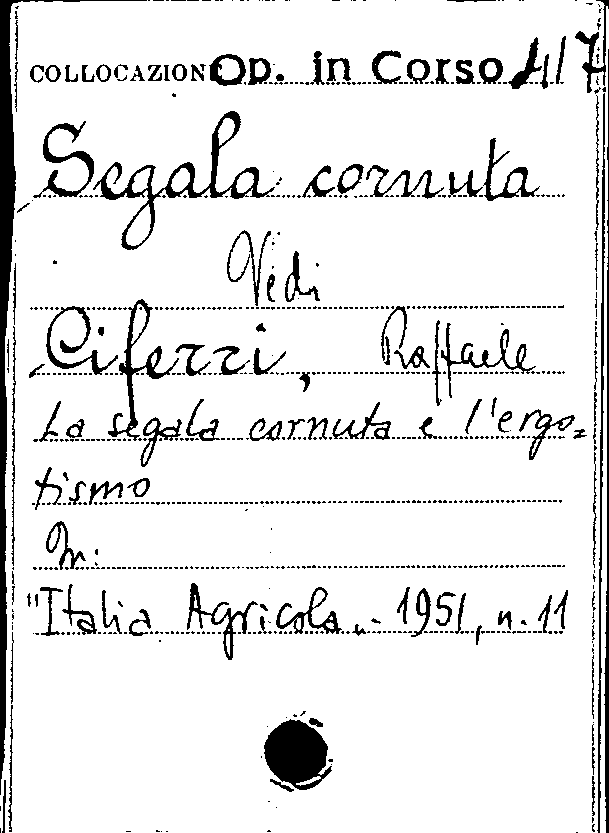 COLLOCAZIONE Op. in Corso 4/7
Segala cornuta
Vedi
Ciferri, Raffaele
La segala cornuta e l'ergo=
tismo
In:
"Italia Agricola„. 1951, n. 11